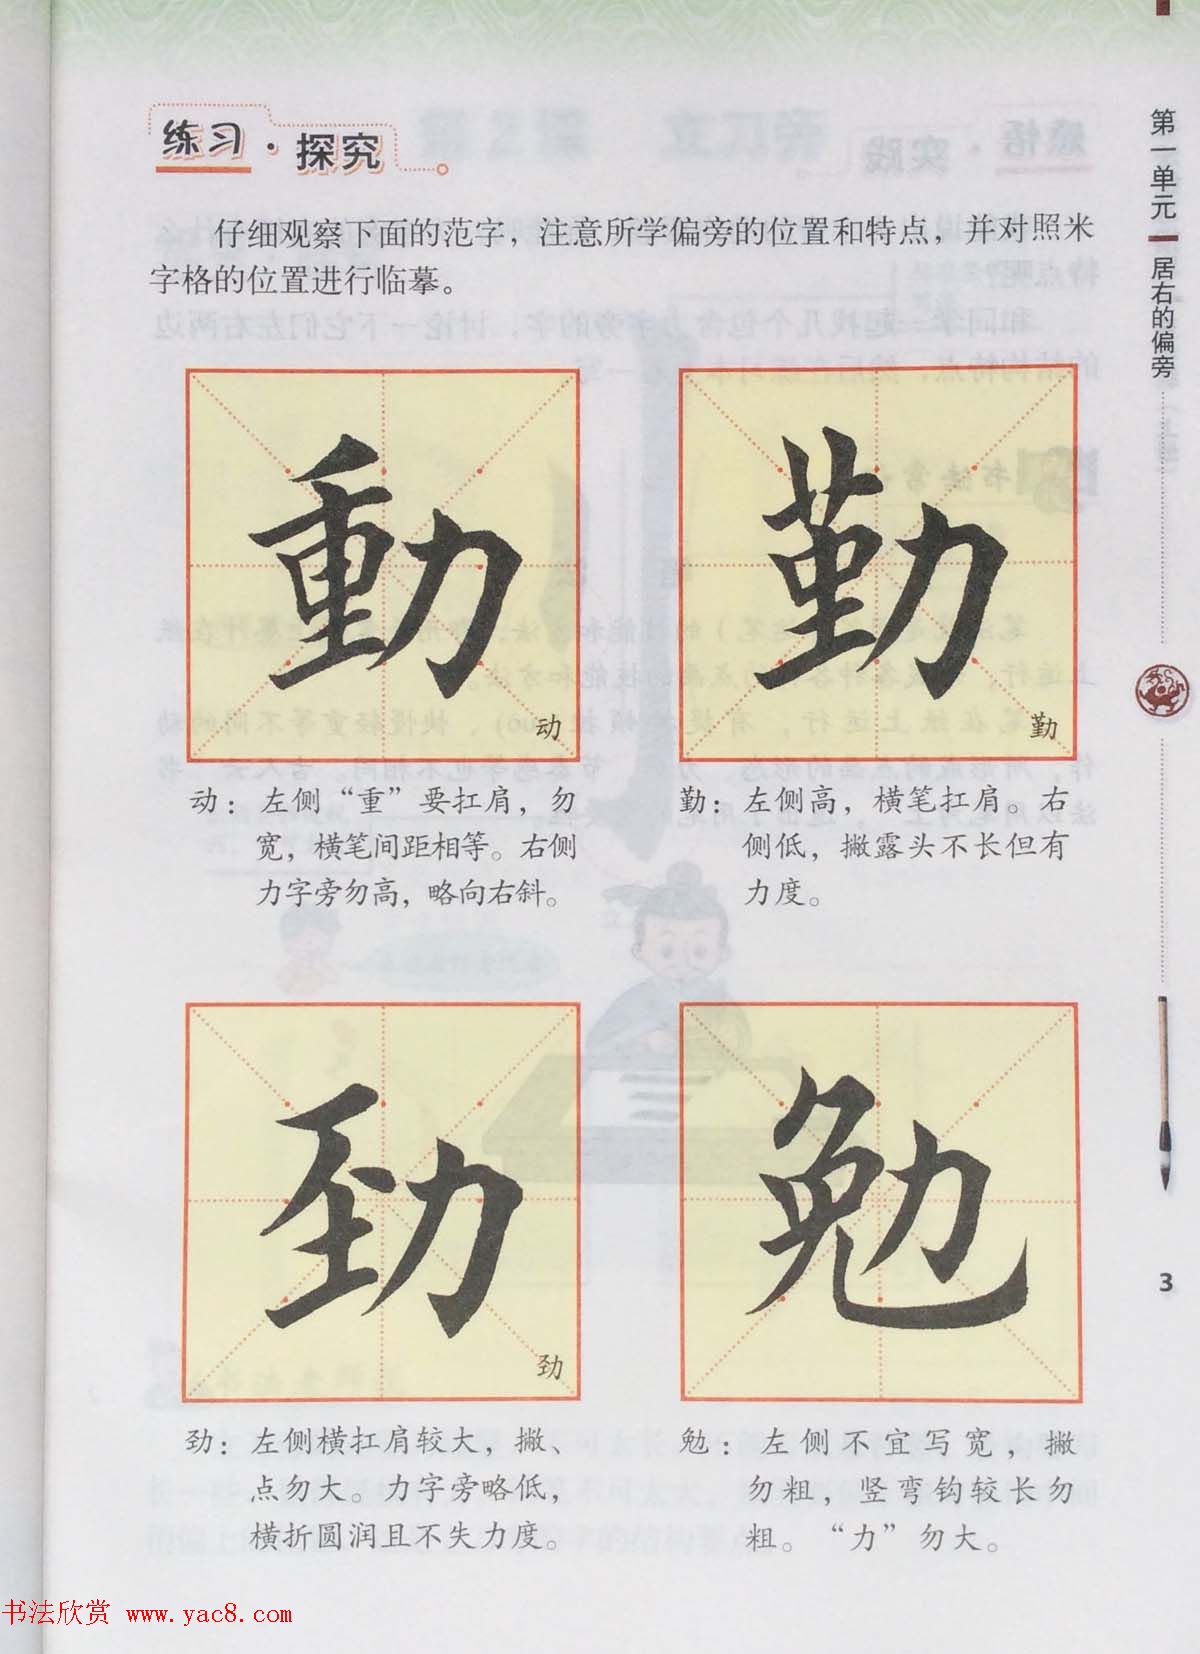 练习·探究
仔细观察下面的范字，注意所学偏旁的位置和特点，并对照米
字格的位置进行临摹。
動
动
勤
勤
动：左侧“重”要扛肩，勿
宽，横笔间距相等。右侧
力字旁勿高，略向右斜。
勤：左侧高，横笔扛肩。右
侧低，撇露头不长但有
力度。
劲
劲
勉
劲：左侧横扛肩较大，撇、
点勿大。力字旁略低，
横折圆润且不失力度。
勉：左侧不宜写宽，撇
勿粗，竖弯钩较长勿
粗。“力”勿大。
第一单元 居右的偏旁
3
书法欣赏 www.yac8.com